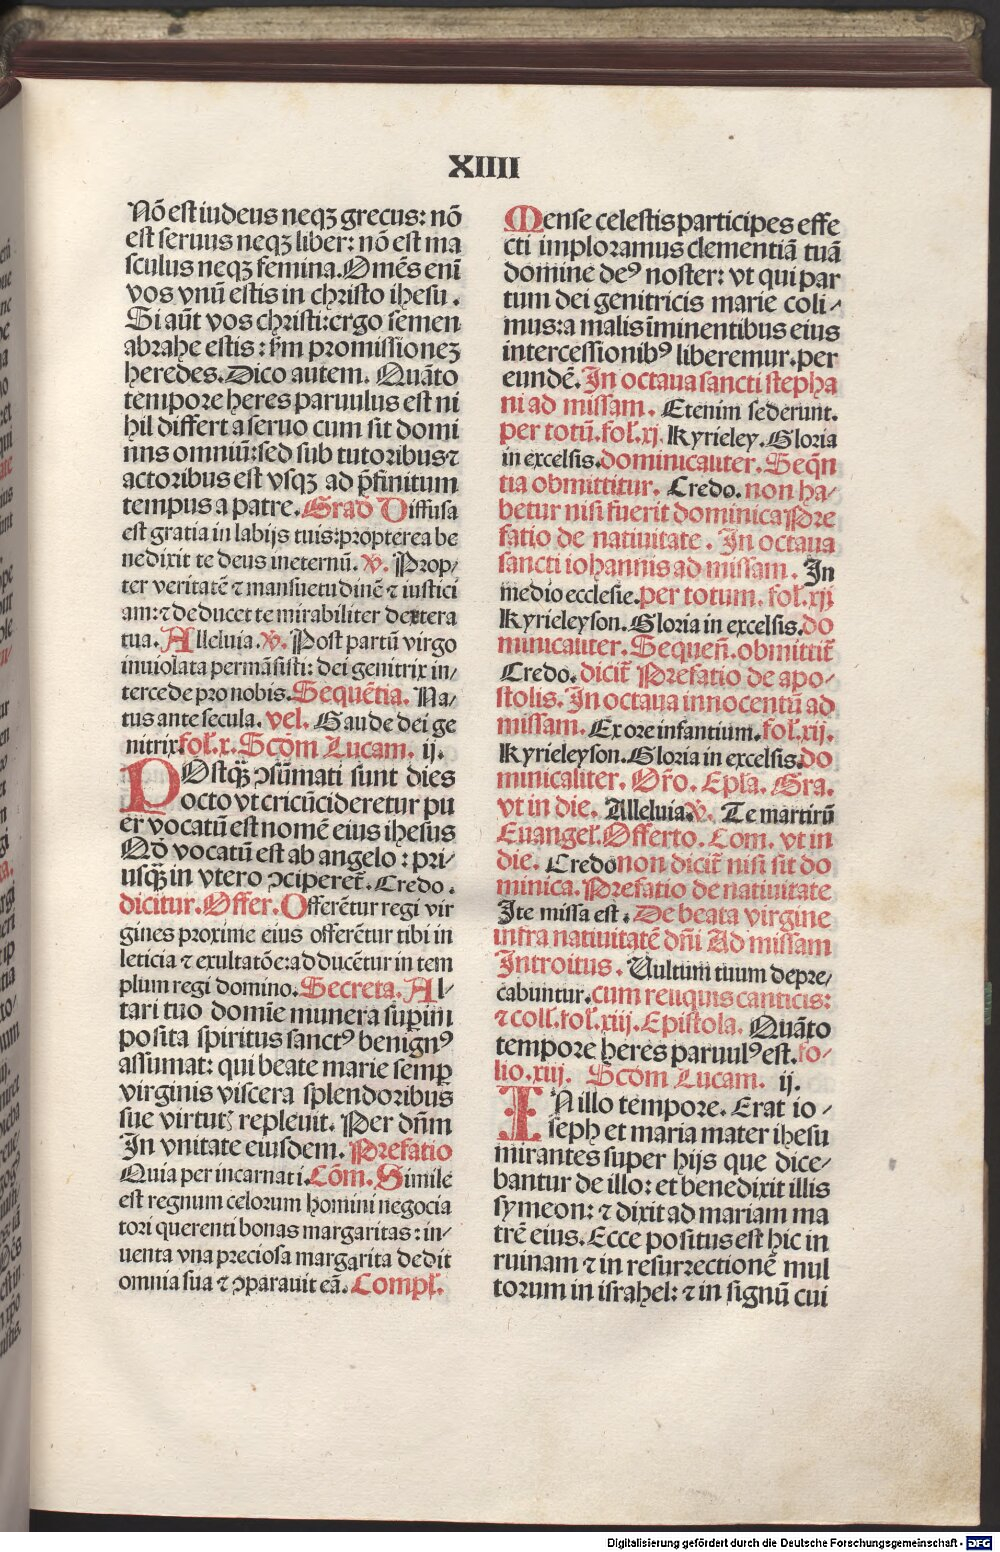 XIIII
Nō est iudeus neqꝫ grecus: nō
est seruus neqꝫ liber: nō est ma
sculus neqꝫ femina. Omēs enī
vos vnū estis in christo ihesu.
Si aūt vos christi: ergo semen
abrahe estis: sm̄ promissionez
heredes. Dico autem. Quāto
tempore heres paruulus est ni
hil differt a seruo cum sit domi
nus omniū: sed sub tutoribus ⁊
actoribus est vsqꝫ ad p̄finitum
tempus a patre. Grad̄ Diffusa
est gratia in labijs tuis: propterea be
nedixit te deus ineternū. ℣. Prop⸗
ter veritatē ⁊ mansuetudinē ⁊ iustici
am: ⁊ deducet te mirabiliter dextera
tua. Alleluia. ℣. Post partū virgo
inuiolata permāsisti: dei genitrix in⸗
tercede pro nobis. Sequētia. Na⸗
tus ante secula. vel. Gaude dei ge
nitrix. fol. x. Scd̄m Lucam. ij.
POstqꝫ ↄsūmati sunt dies
octo vt circūcideretur pu
er vocatū est nomē eius ihesus
Qd̄ vocatū est ab angelo: pri⸗
usqꝫ in vtero ↄciperet̄. Credo.
dicitur. Offer. Offerētur regi vir
gines proxime eius offerētur tibi in
leticia ⁊ exultatōe: adducētur in tem
plum regi domino. Secreta. Al⸗
tari tuo domīe munera sup̄im
posita spiritus sanctꝰ benignꝰ
assumat: qui beate marie semp̄
virginis viscera splendoribus
sue virtutꝭ repleuit. Per dn̄m
In vnitate eiusdem. Prefatio
Quia per incarnati. Cōm. Simile
est regnum celorum homini negocia
tori querenti bonas margaritas: in⸗
uenta vna preciosa margarita dedit
omnia sua ⁊ ↄparauit eā. Compl̄.
Mense celestis participes effe
cti imploramus clementiā tuā
domine deꝰ noster: vt qui par
tum dei genitricis marie coli⸗
mus: a malis īminentibus eius
intercessionibꝰ liberemur. per
eundē. In octaua sancti stepha
ni ad missam. Etenim sederunt.
per totū. fol. xj. Kyrieley. Gloria
in excelsis. dominicauter. Seqn̄
tia obmittitur. Credo. non ha⸗
betur nisi fuerit dominica Pre
fatio de natiuitate. In octaua
sancti iohannis ad missam. In
medio ecclesie. per totum. fol. xij
Kyrieleyson. Gloria in excelsis. do
minicauter. Sequen̄. obmittit̄
Credo. dicit̄ Prefatio de apo⸗
stolis. In octaua innocentū ad
missam. Ex ore infantium. fol. xij.
Kyrieleyson. Gloria in excelsis. do
minicaliter. Or̄o. Ep̄la. Gra.
vt in die. Alleluia. ℣. Te martirū
Euangel. Offerto. Com. vt in
die. Credo non dicit̄ nisi sit do
minica. Prefatio de natiuitate
Ite missa est. De beata virgine
infra natiuitatē dn̄i Ad missam
Introitus. Uultum tuum depre⸗
cabuntur. cum reliquis canticis:
⁊ coll. fol. xiij. Epistola. Quāto
tempore heres paruulꝰ est. fo⸗
lio. xiij. Scd̄m Lucam. ij.
IN illo tempore. Erat io⸗
seph et maria mater ihesu
mirantes super hijs que dice⸗
bantur de illo: et benedixit illis
symeon: ⁊ dixit ad mariam ma
trē eius. Ecce positus est hic in
ruinam ⁊ in resurrectionē mul
torum in israhel: ⁊ in signū cui
Digitalisierung gefördert durch die Deutsche Forschungsgemeinschaft - DFG